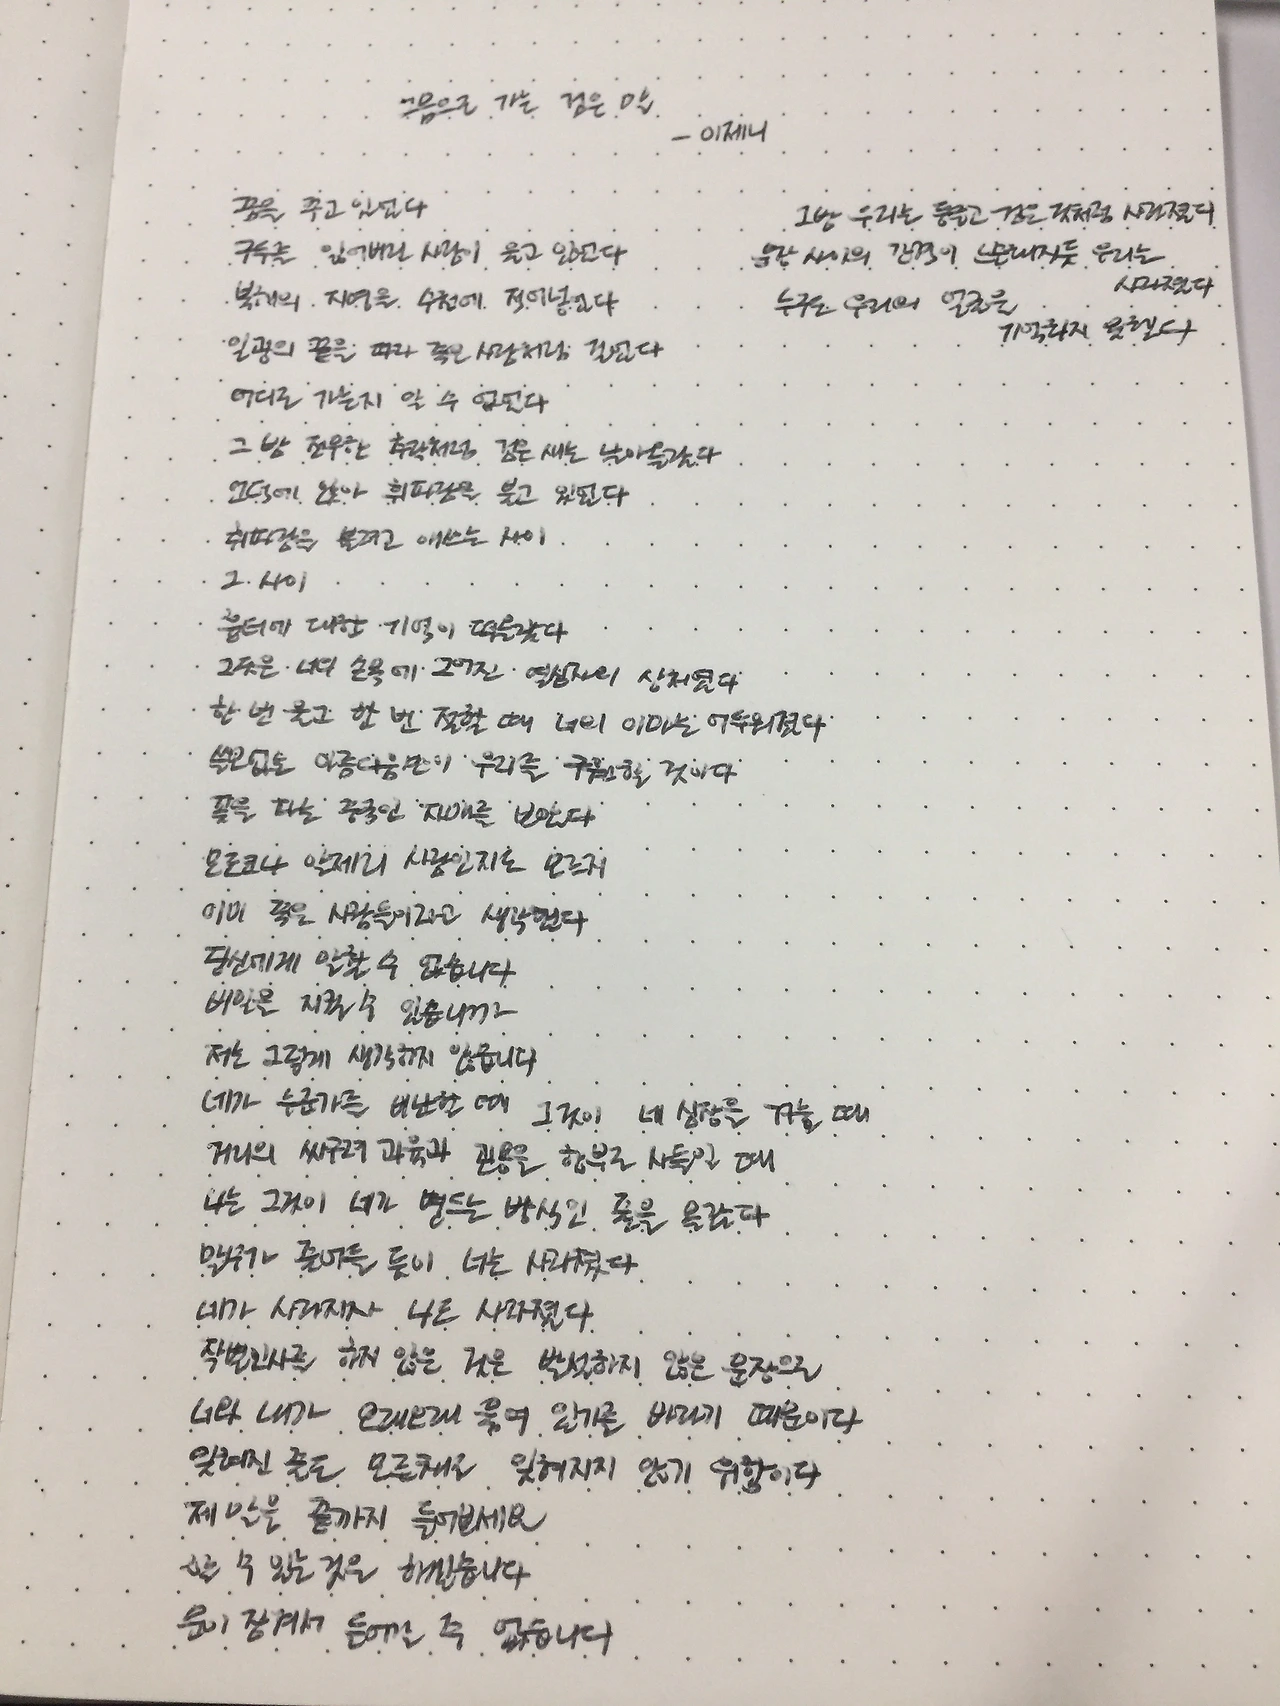 그믐으로 가는 검은 말
- 이제니
꿈을 꾸고 있었다
구두를 잃어버린 사람이 울고 있었다
북해의 지명을 수첩에 적어넣었다
일광의 끝을 따라 죽은 사람처럼 걸었다
어디로 가는지 알 수 없었다
그 밤 전무한 추락처럼 검은 새는 날아올랐다
언덕에 앉아 휘파람을 불고 있었다
휘파람을 불려고 애쓰는 사이
그 사이
흉터에 대한 기억이 떠올랐다
그것은 너의 손목에 그어진 열십자의 상처였다
한 번 울고 한 번 절할 때 너의 이마는 어두워졌다
쓸모없는 아름다움만이 우리를 구원할 것이다
꽃을 파는 중국인 자매를 보았다
모로코나 알제리 사람인지도 모르지
이미 죽은 사람들이라고 생각했다
당신에게 말할 수 없습니다
비밀을 지킬 수 있습니까
저는 그렇게 생각하지 않습니다
네가 누군가를 비난할 때 그것이 네 심장을 겨눌 때
거리의 싸구려 과육과 관용을 함부로 사들일 때
나는 그것이 네가 병드는 방식인 줄을 몰랐다
말수가 줄어들 듯이 너는 사라졌다
네가 사라지자 나도 사라졌다
작별인사를 하지 않은 것은 발설하지 않은 문장으로
너와 내가 오래오래 묶여 있기를 바라기 때문이다
잊혀진 줄도 모른채로 잊혀지지 않기 위함이다
제 말을 끝까지 들어보세요
할 수 있는 것을 해봤습니다
문이 잠겨서 들어갈 수 없습니다
그 밤 우리는 둥글고 검은 것처럼 사라졌다
문장 사이의 간격이 느슨해지듯 우리는
사라졌다
누구도 우리의 얼굴을
기억하지 못했다